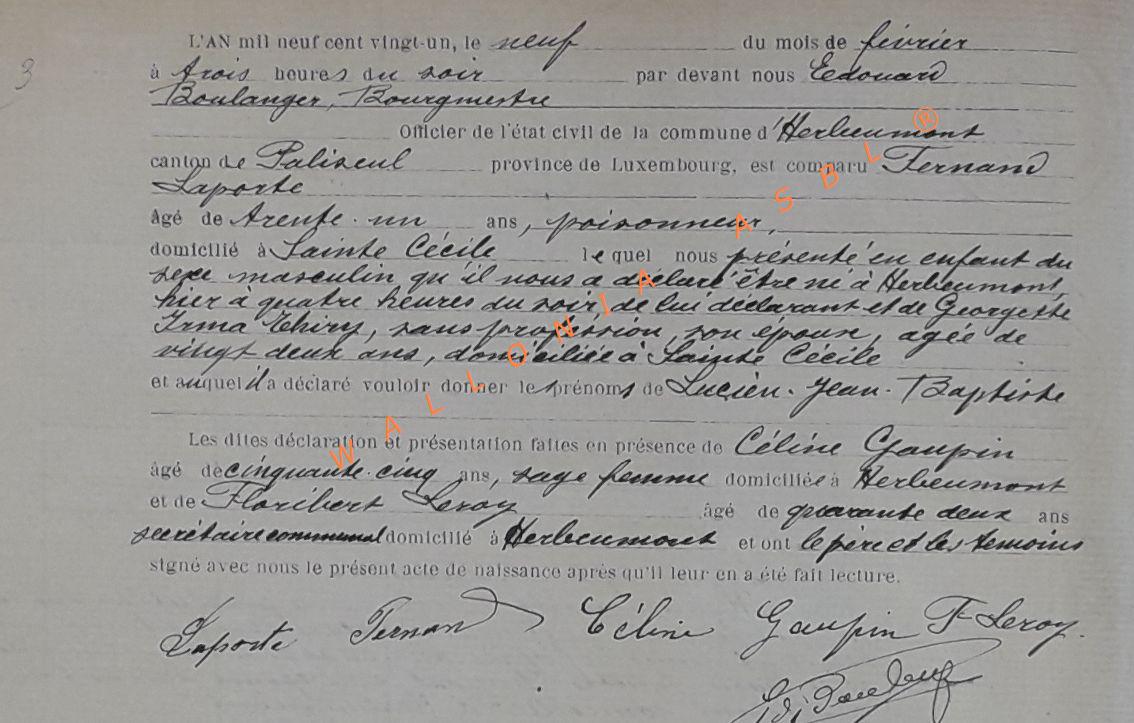 3
L'AN mil neuf cent vingt-un, le neuf du mois de février
à trois heures du soir par devant nous Edouard
Boulanger, Bourgmestre
Officier de l'état civil de la commune d'Herbeumont
canton de Paliseul province de Luxembourg, est comparu Fernand
Laporte
âgé de trente-un ans, poisonneur,
domicilié à Sainte Cécile lequel nous présenté en enfant du
sexe masculin qu'il nous a déclaré être né à Herbeumont
hier à quatre heures du soir, de lui déclarant et de Georgette
Irma Thiry, sans profession, son épouse, agée de
vingt deux ans, domiciliée à Sainte Cécile
et auquel il a déclaré vouloir donner les prénoms de Lucien-Jean-Baptiste
Les dites déclaration et présentation faites en présence de Céline Gaupin
âgé de cinquante-cinq ans, sage femme domiciliée à Herbeumont
et de Floribert Leroy âgé de quarante deux ans
secrétaire communal domicilié à Herbeumont et ont le père et les témoins
signé avec nous le présent acte de naissance après qu'il leur en a été fait lecture.
Laporte Fernand Céline Gaupin F Leroy.
Ed. Boulanger
WALLONIA ASBL ®